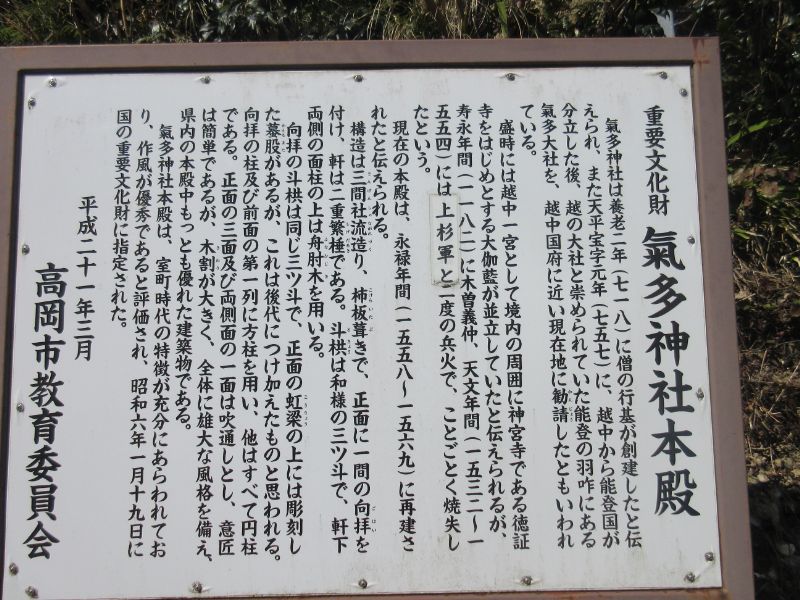 重要文化財 氣多神社本殿
氣多神社は養老二年（七一八）に僧の行基が創建したと伝
えられ、また天平宝字元年（七五七）に、越中から能登国が
分立した後、越の大社と崇められていた能登の羽咋にある
氣多大社を、越中国府に近い現在地に勧請したともいわれ
ている。
盛時には越中一宮として境内の周囲に神宮寺である徳証
寺をはじめとする大伽藍が並立していたと伝えられるが、
寿永年間（一一八二）に木曽義仲、天文年間（一五三二～一
五五四）には上杉軍と二度の兵火で、ことごとく焼失し
たという。
現在の本殿は、永禄年間（一五五八～一五六九）に再建さ
れたと伝えられる。
構造は三間社流造り、杮板葺きで、正面に一間の向拝を
付け、軒は二重繁棰である。斗栱は和様の三ツ斗で、軒下
両側の面柱の上は舟肘木を用いる。
向拝の斗栱は同じ三ツ斗で、正面の虹梁の上には彫刻し
た蟇股があるが、これは後代につけ加えたものと思われる。
向拝の柱及び前面の第一列に方柱を用い、他はすべて円柱
である。正面の三面及び両側面の一面は吹通しとし、意匠
は簡単であるが、木割が大きく、全体に雄大な風格を備え、
県内の本殿中もっとも優れた建築物である。
氣多神社本殿は、室町時代の特徴が充分にあらわれてお
り、作風が優秀であると評価され、昭和六年一月十九日に
国の重要文化財に指定された。
平成二十一年三月
高岡市教育委員会